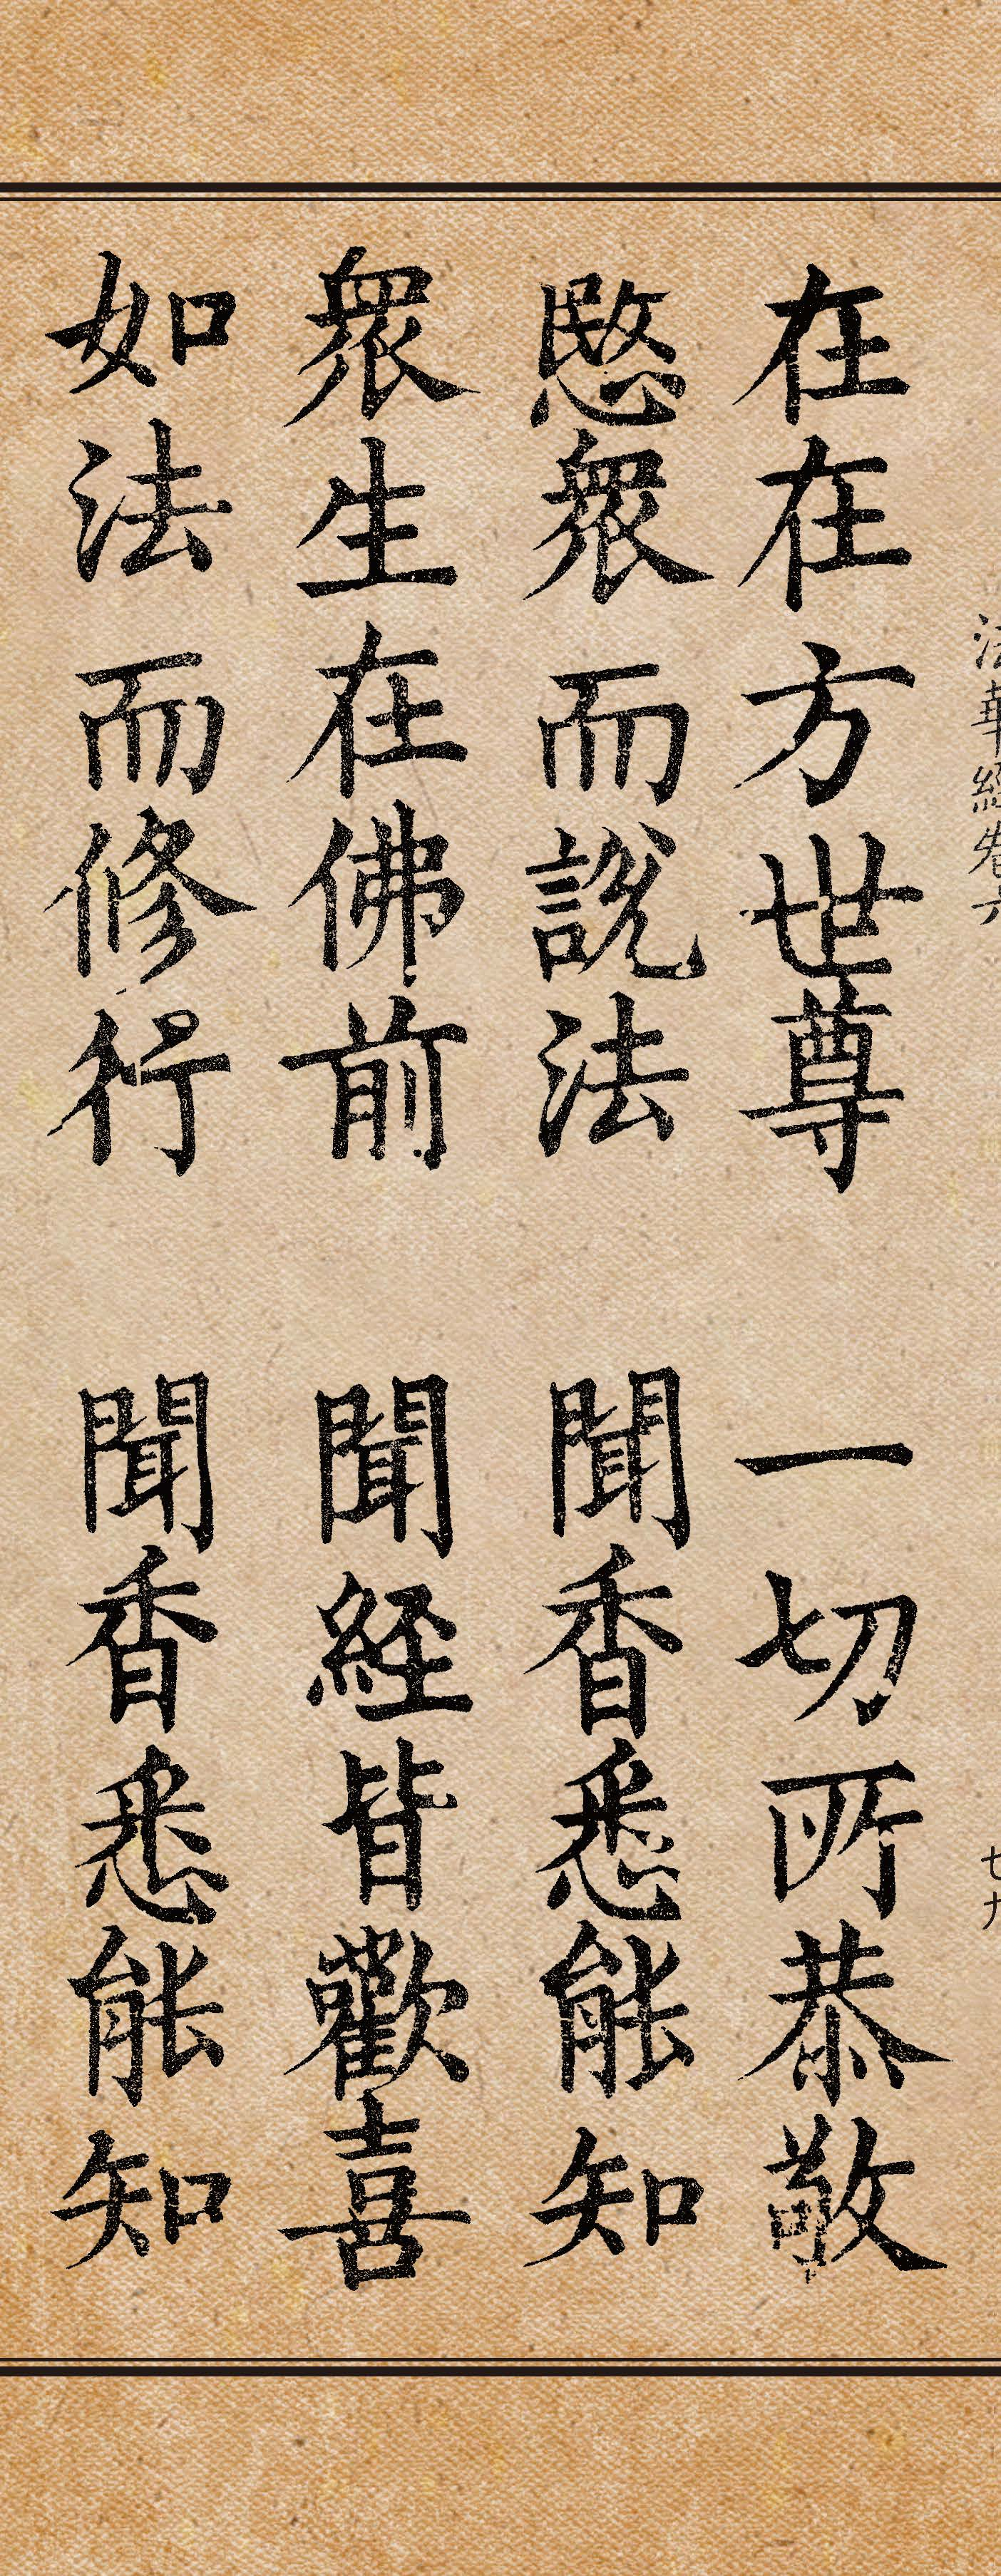 法華經卷六 七九
在在方世尊 一切所恭敬
愍衆而說法 聞香悉能知
衆生在佛前 聞経皆歡喜
如法而修行 聞香悉能知